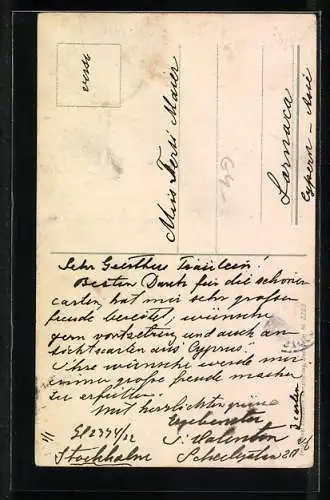 verso
Miss Ferti Maier
Larnaca
Cypern - Asie
Sehr Geerthee Fräulein!
Besten Dank für die schönen
carten, hat mir sehr grossen
freude bereitet, wünsche
gern vortsetzung und auch an
sichtscarten aus Cyprus!
Ihre wünsche werde mir
immer grosse freude machen
zu erfüllen.
Mit herzlichten grüsse
Ergebenster
Stockholm